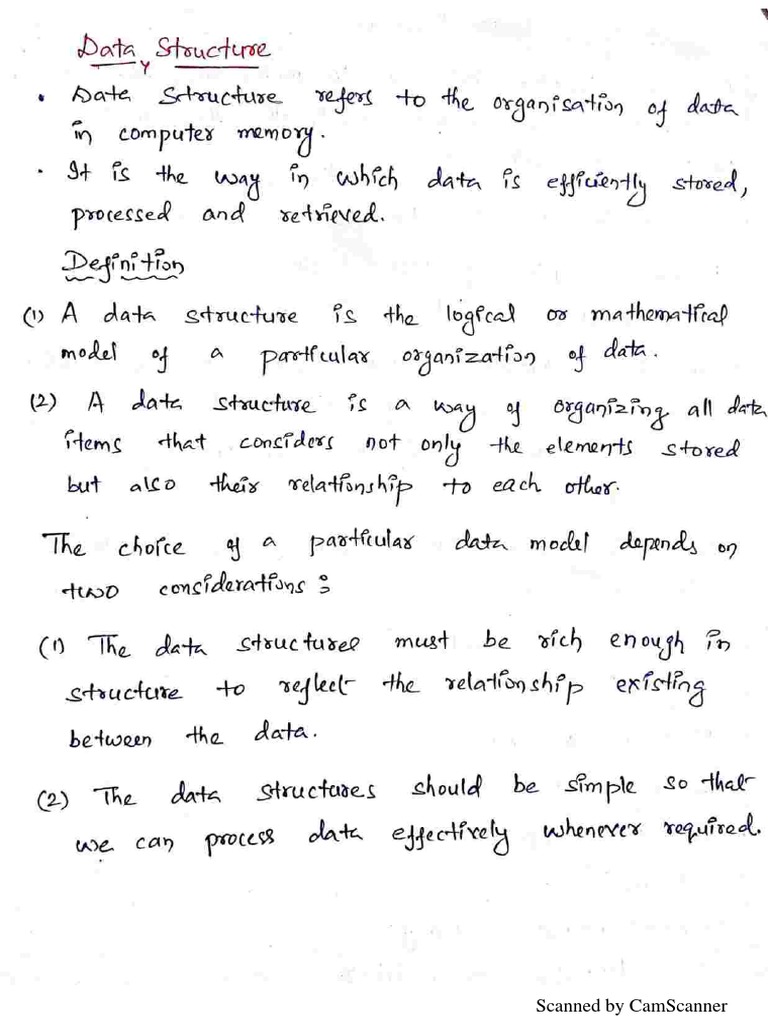 Data Structure
• Data Structure refers to the organisation of data
in computer memory.
• It is the way in which data is efficiently stored,
processed and retrieved.
Definition
(1) A data structure is the logical or mathematical
model of a particular organization of data.
(2) A data structure is a way of organizing all data
items that considers not only the elements stored
but also their relationship to each other.
The choice of a particular data model depends on
two considerations :
(1) The data structures must be rich enough in
structure to reflect the relationship existing
between the data.
(2) The data structures should be simple so that
we can process data effectively whenever required.
Scanned by CamScanner